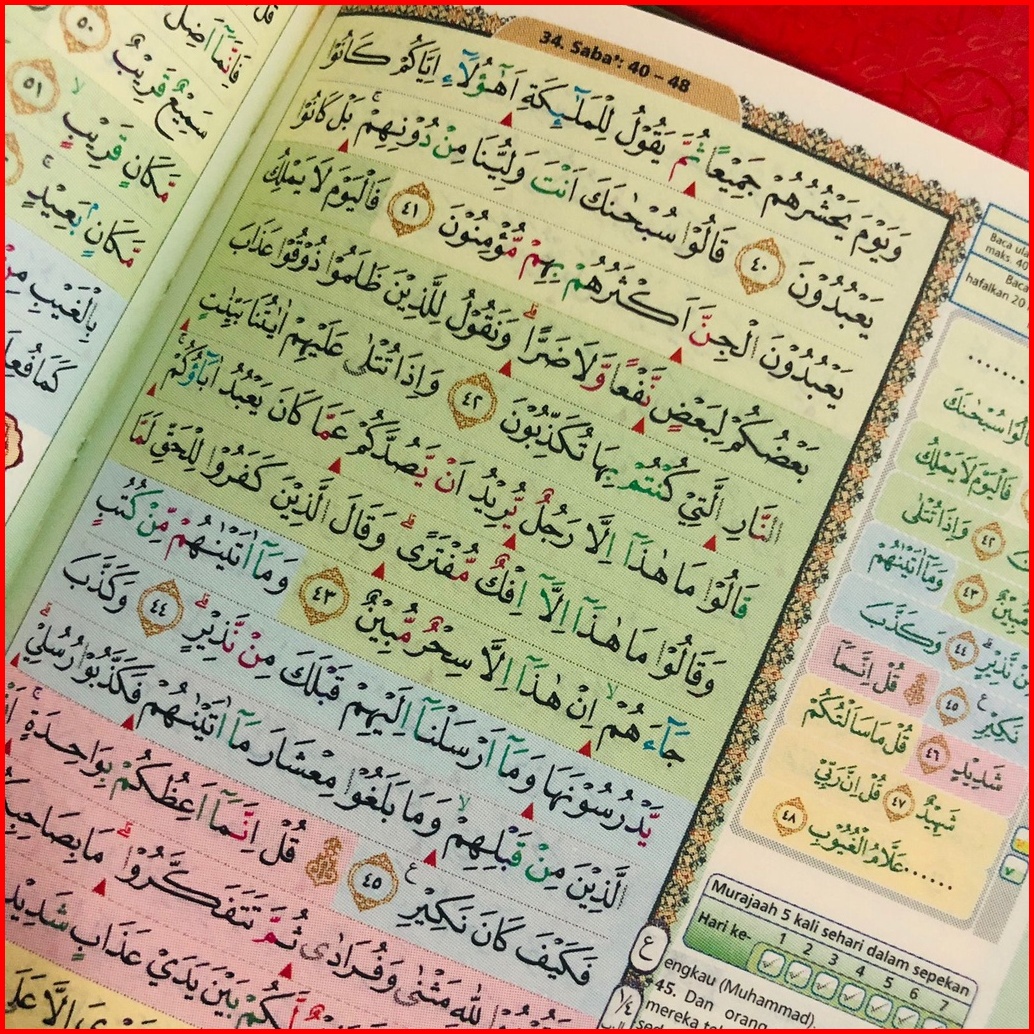 34. Saba': 40 – 48
وَيَوْمَ يَحْشُرُهُمْ جَمِيْعًا ثُمَّ يَقُوْلُ لِلْمَلٰۤىِٕكَةِ اَهٰٓؤُلَاۤءِ اِيَّاكُمْ كَانُوْا
يَعْبُدُوْنَ ﴿٤٠﴾ قَالُوْا سُبْحٰنَكَ اَنْتَ وَلِيُّنَا مِنْ دُوْنِهِمْ ۚ بَلْ كَانُوْا
يَعْبُدُوْنَ الْجِنَّ اَكْثَرُهُمْ بِهِمْ مُّؤْمِنُوْنَ ﴿٤١﴾ فَالْيَوْمَ لَا يَمْلِكُ
بَعْضُكُمْ لِبَعْضٍ نَّفْعًا وَّلَا ضَرًّا ۗ وَنَقُوْلُ لِلَّذِيْنَ ظَلَمُوْا ذُوْقُوْا عَذَابَ
النَّارِ الَّتِيْ كُنْتُمْ بِهَا تُكَذِّبُوْنَ ﴿٤٢﴾ وَاِذَا تُتْلٰى عَلَيْهِمْ اٰيٰتُنَا بَيِّنٰتٍ
قَالُوْا مَا هٰذَآ اِلَّا رَجُلٌ يُّرِيْدُ اَنْ يَّصُدَّكُمْ عَمَّا كَانَ يَعْبُدُ اٰبَاۤؤُكُمْ ۚ
وَقَالُوْا مَا هٰذَآ اِلَّآ اِفْكٌ مُّفْتَرًى ۗ وَقَالَ الَّذِيْنَ كَفَرُوْا لِلْحَقِّ لَمَّا
جَاۤءَهُمْ ۙ اِنْ هٰذَآ اِلَّا سِحْرٌ مُّبِيْنٌ ﴿٤٣﴾ وَمَآ اٰتَيْنٰهُمْ مِّنْ كُتُبٍ
يَّدْرُسُوْنَهَا وَمَآ اَرْسَلْنَآ اِلَيْهِمْ قَبْلَكَ مِنْ نَّذِيْرٍ ۗ ﴿٤٤﴾ وَكَذَّبَ
الَّذِيْنَ مِنْ قَبْلِهِمْ ۙ وَمَا بَلَغُوْا مِعْشَارَ مَآ اٰتَيْنٰهُمْ فَكَذَّبُوْا رُسُلِيْ ۗ
فَكَيْفَ كَانَ نَكِيْرِ ࣖ ﴿٤٥﴾ قُلْ اِنَّمَآ اَعِظُكُمْ بِوَاحِدَةٍ ۚ
لِلّٰهِ مَثْنٰى وَفُرَادٰى ثُمَّ تَتَفَكَّرُوْا ۗ مَا بِصَاحِبِكُمْ
لَّكُمْ بَيْنَ يَدَيْ عَذَابٍ شَدِيْدٍ
اِلَّا عَلَى
٥٠
فَاِنَّمَآ اَضِلُّ
سَمِيْعٌ قَرِيْبٌ
٥١
مَّكَانٍ قَرِيْبٍ ۙ
مَّكَانٍ بَعِيْدٍ ۚ
بِالْغَيْبِ مِنْ
كَمَا فُعِلَ
Baca
maks. 40
Baca
hafalkan 20
قَالُوْا سُبْحٰنَكَ
فَالْيَوْمَ لَا يَمْلِكُ
٤٢ وَاِذَا تُتْلٰى
مُّبِيْنٌ ٤٣ وَمَآ اٰتَيْنٰهُمْ
مِنْ نَّذِيْرٍ ۗ ٤٤ وَكَذَّبَ
نَكِيْرِ ࣖ ٤٥ قُلْ اِنَّمَآ
شَدِيْدٍ ٤٦ قُلْ مَا سَاَلْتُكُمْ
شَهِيْدٌ ٤٧ قُلْ اِنَّ رَبِّيْ
......عَلَّامُ الْغُيُوْبِ ٤٨
Murajaah 5 kali sehari dalam sepekan
Hari ke- 1 2 3 4 5 6 7
ع
١/٤
engkau (Muhammad)
45. Dan orang
mereka